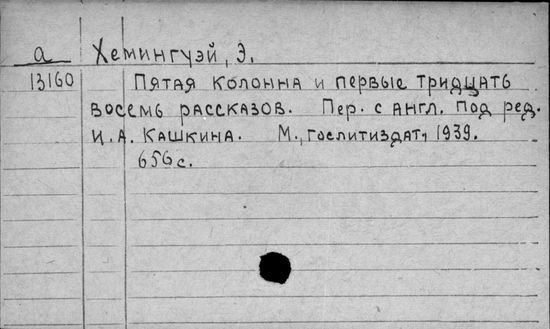 а Хемингуэй, Э.
13160 Пятая колонна и первые тридцать
восемь рассказов. Пер. с англ. под ред.
И.А. Кашкина. М., Гослитиздат, 1939.
656 с.